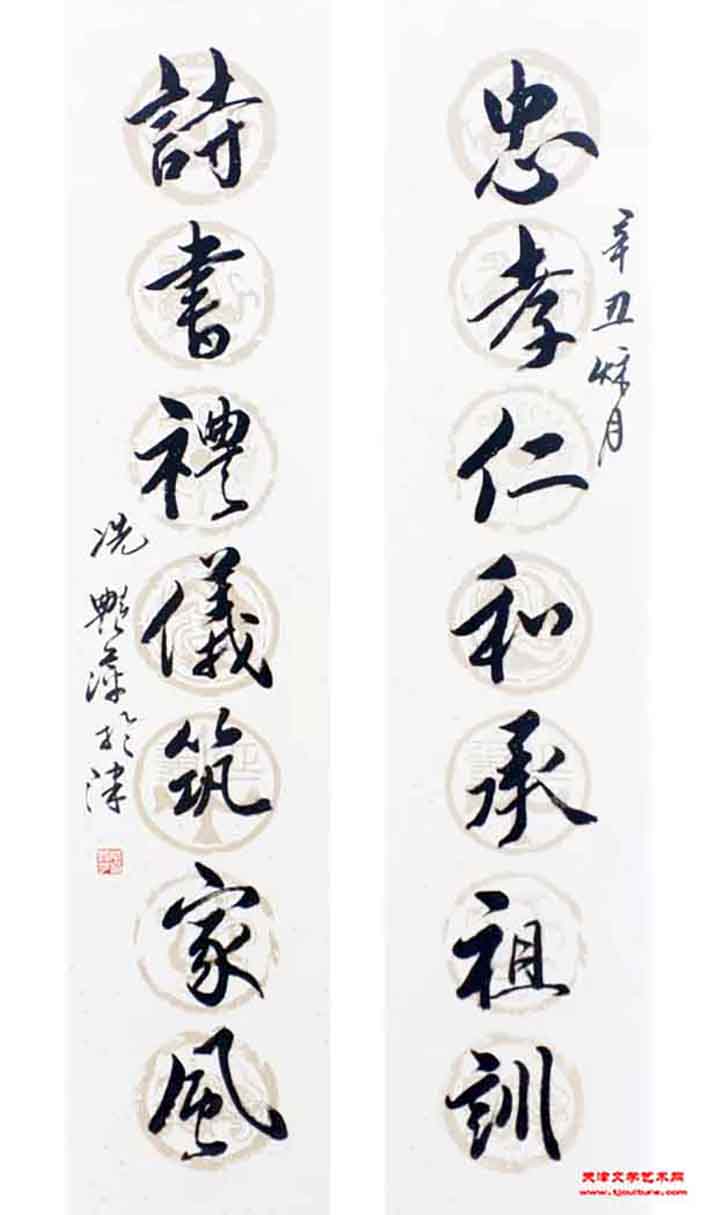 忠孝仁和承祖訓
辛丑秋月
詩書禮儀筑家風
冼艷萍於津
天津文学艺术网
www.tjculture.com